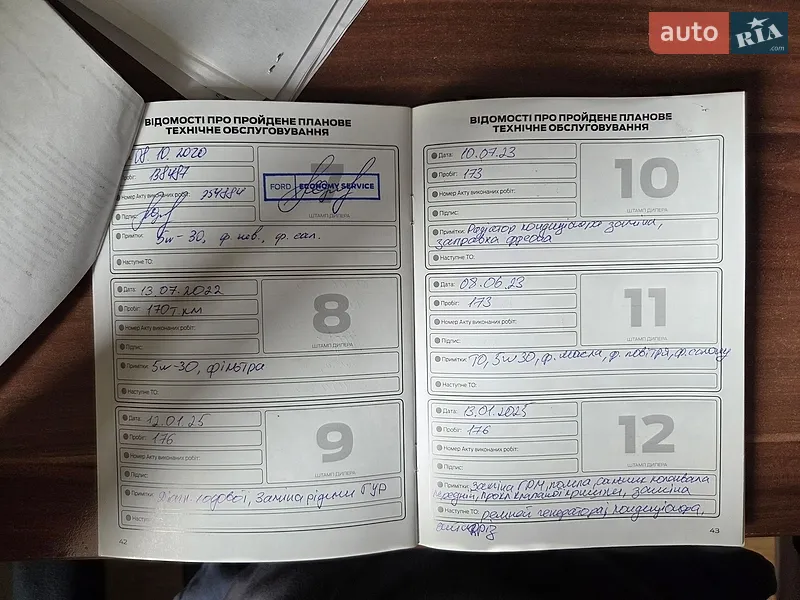 auto RIA .com
ВІДОМОСТІ ПРО ПРОЙДЕНЕ ПЛАНОВЕ
ТЕХНІЧНЕ ОБСЛУГОВУВАННЯ
08.10.2020
138487
Номер Акту виконаних робіт: 254884
Підпис:
7
FORD ECONOMY SERVICE
ШТАМП ДИЛЕРА
Примітки: 5w-30, ф. пов., ф. сал.
Наступне ТО:
Дата: 13.07.2022
Пробіг: 170 т. км
Номер Акту виконаних робіт:
Підпис:
8
ШТАМП ДИЛЕРА
Примітки: 5w-30, фільтра
Наступне ТО:
Дата: 12.01.25
Пробіг: 176
Номер Акту виконаних робіт:
Підпис:
9
ШТАМП ДИЛЕРА
Примітки: ходової, Заміна рідини ГУР
Наступне
42
ВІДОМОСТІ ПРО ПРОЙДЕНЕ ПЛАНОВЕ
ТЕХНІЧНЕ ОБСЛУГОВУВАННЯ
Дата: 10.07.23
Пробіг: 173
Номер Акту виконаних робіт:
Підпис:
10
ШТАМП ДИЛЕРА
Примітки: Радіатор кондиціонера заміна,
заправка фреона
Наступне ТО:
Дата: 08.06.23
Пробіг: 173
Номер Акту виконаних робіт:
Підпис:
11
ШТАМП ДИЛЕРА
Примітки: ТО, 5w30, ф. масла, ф. повітря, ф. салону
Наступне ТО:
Дата: 13.01.2025
Пробіг: 176
Номер Акту виконаних робіт:
Підпис:
12
ШТАМП ДИЛЕРА
Примітки: Заміна ГРМ, помпа, сальник колінвала
передній, прокл клапаної кришки, заміна
Наступне ТО: ремней генератора, кондиціонера,
43